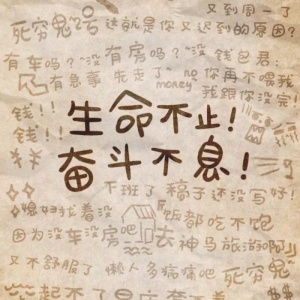 又到周一了
死穷鬼 这就是你又迟到的原因?
有车吗? 没有房吗? 没钱包君:
有急事先走了 no money 你再不喂我
我跟你没完!
钱!!
钱!!
生命不止!
奋斗不息!
下班了 稿子还没写好!
媳妇找着没 饭都吃不饱
因为没车没房吧 去神马旅游啊
又不舒服了 懒人多病痛吧 死穷鬼
起不了